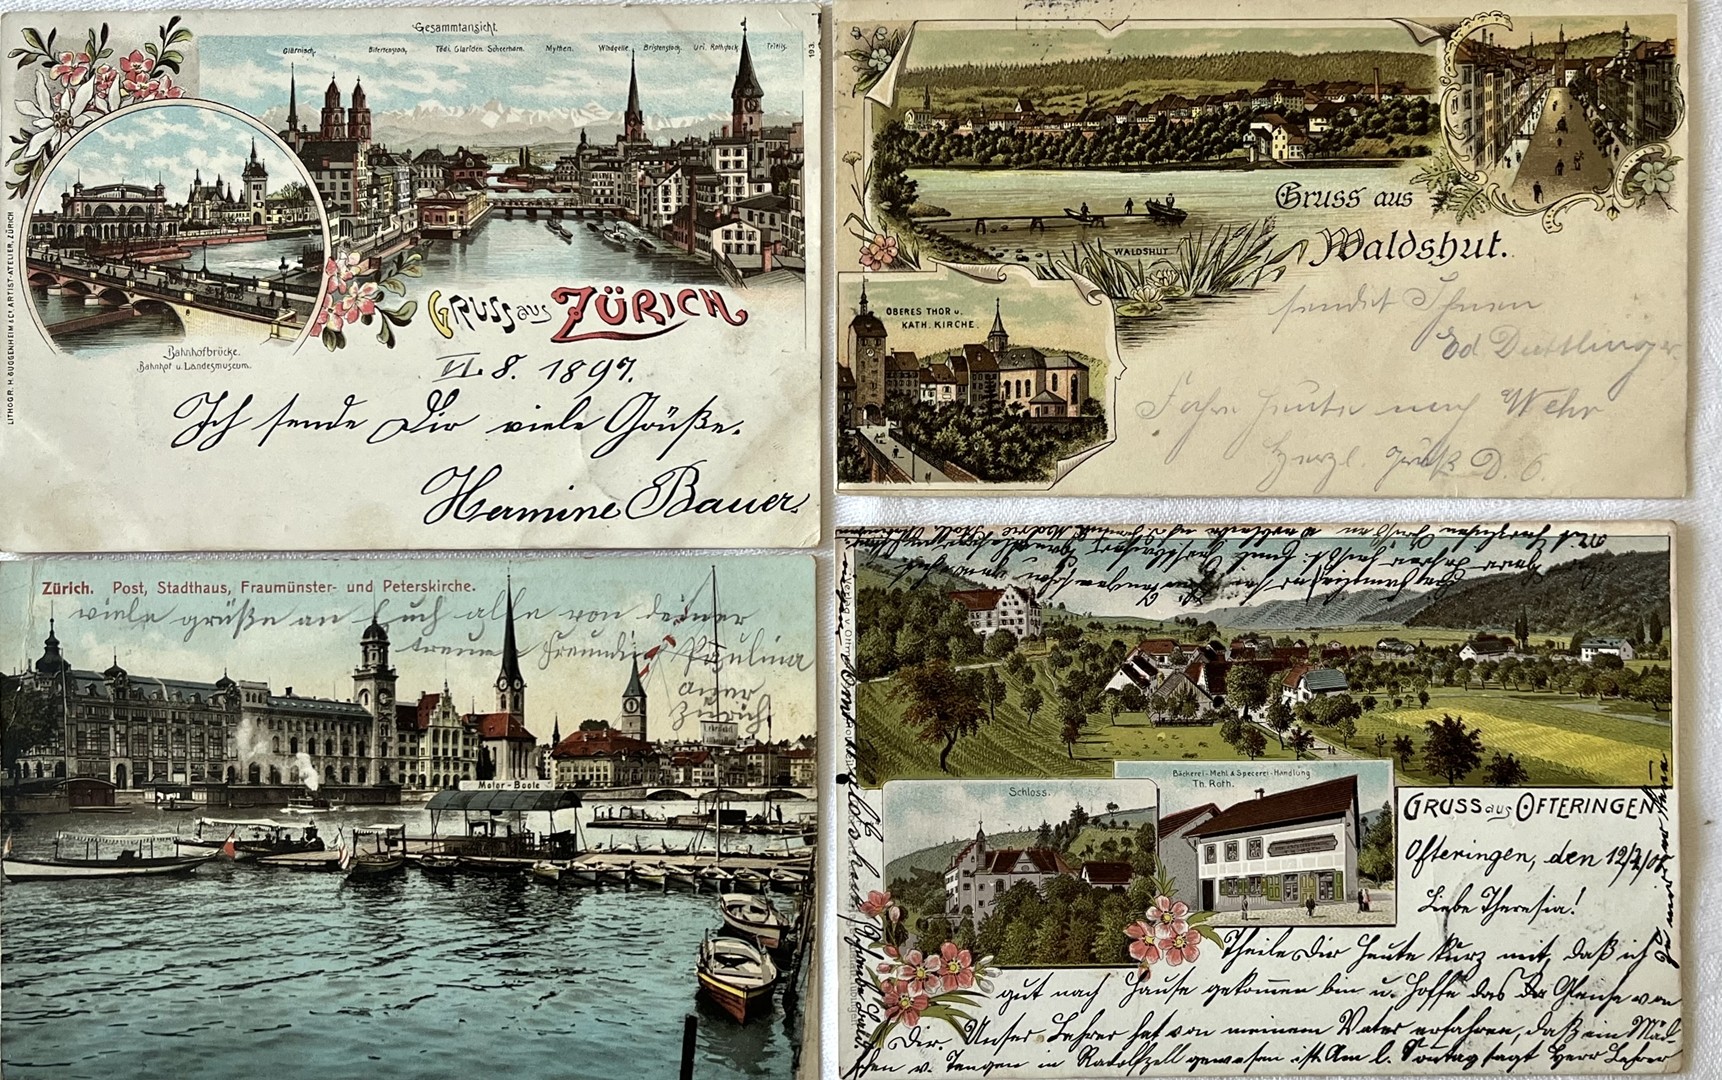 Gesammtansicht.
Glärnisch. Bifertenstock. Tödi. Clariden. Scheerhorn. Mythen. Windgelle. Bristenstock. Uri. Rothstock. Titlis.
193.
LITHOGR. H. GUGGENHEIM & Co. ARTIST-ATELIER, ZÜRICH
Gruss aus Zürich.
Bahnhofbrücke.
Bahnhof u. Landesmuseum.
VI. 8. 1897.
Ich sende Dir viele Grüße.
Hermine Bauer
Gruss aus
Waldshut.
WALDSHUT
OBERES THOR u.
KATH. KIRCHE.
sendet Ihnen
Ed Duttlinger
Fahre heute nach Wehr
Herzl. Gruß D. O.
Zürich. Post, Stadthaus, Fraumünster- und Peterskirche.
viele grüße an Euch alle von deiner
treuen Freundin Paulina
auer
Zürich
Motor-Boote
Schloss.
Bäckerei- Mehl & Specerei-Handlung
Th. Roth.
Gruss aus Ofteringen
Ofteringen, den 12/
Liebe Theresia!
Theile Dir heute kurz mit, daß ich
gut nach Hause gekommen bin u. hoffe das Gleiche von
Dir. Unser Lehrer hat von meinem Vater erfahren, daß ein Mäd-
chen v. Tengen in Radolfzell gewesen ist. Am l. Sonntag sagt Herr Lehrer